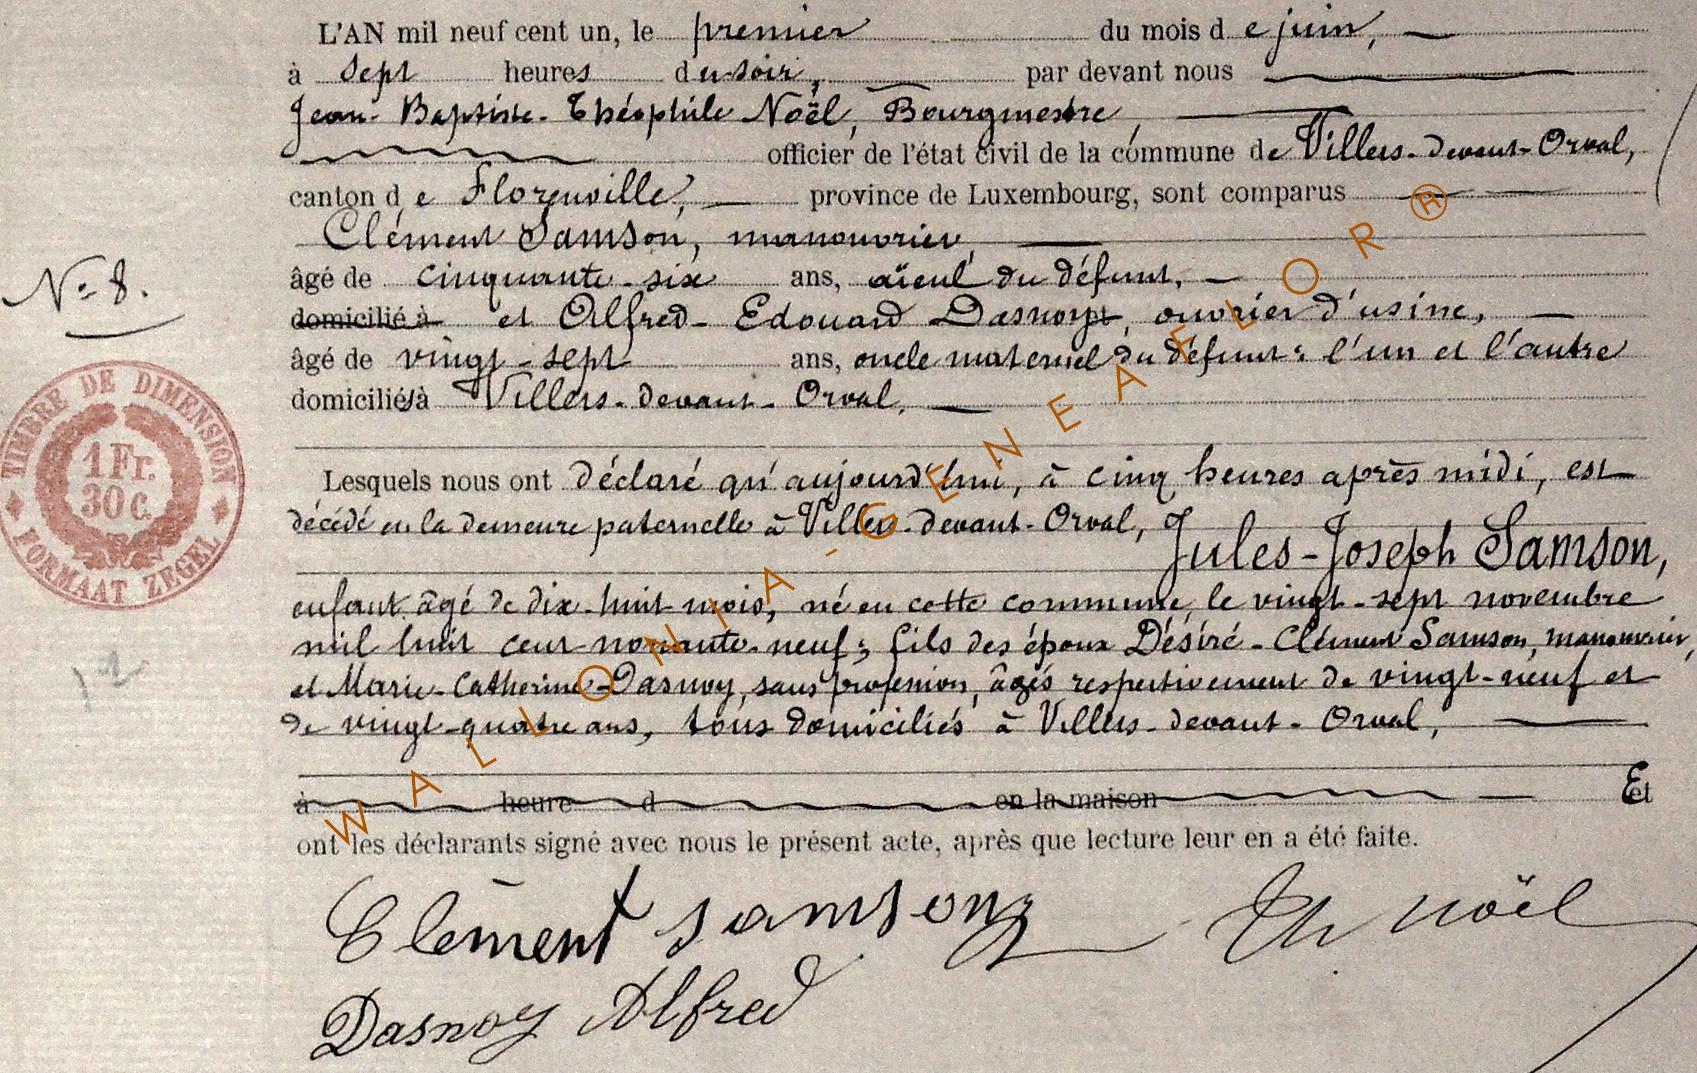 L'AN mil neuf cent un, le premier du mois de juin,
à sept heures du soir, par devant nous
Jean-Baptiste-Théophile Noël, Bourgmestre,
officier de l'état civil de la commune de Villers-devant-Orval,
canton de Florenville, province de Luxembourg, sont comparus
Clément Samson, manouvrier,
N° 8.
âgé de cinquante-six ans, aïeul du défunt,
domicilié à et Alfred-Edouard Dasnoy, ouvrier d'usine,
âgé de vingt-sept ans, oncle maternel du défunt; l'un et l'autre
domiciliés à Villers-devant-Orval,
TIMBRE DE DIMENSION
1 Fr.
30 c.
FORMAAT ZEGEL
Lesquels nous ont déclaré qu'aujourd'hui, à cinq heures après midi, est
décédé en la demeure paternelle à Villers-devant-Orval,
Jules-Joseph Samson,
enfant âgé de dix-huit mois, né en cette commune, le vingt-sept novembre
mil huit cent nonante-neuf; fils des époux Désiré-Clément Samson, manouvrier,
12
et Marie-Catherine Dasnoy, sans profession, âgés respectivement de vingt-neuf et
de vingt-quatre ans, tous domiciliés à Villers-devant-Orval,
à heure d en la maison Et
ont les déclarants signé avec nous le présent acte, après que lecture leur en a été faite.
Clément Samson Th Noël
Dasnoy Alfred
WALLONIA-GENEAFLOR®